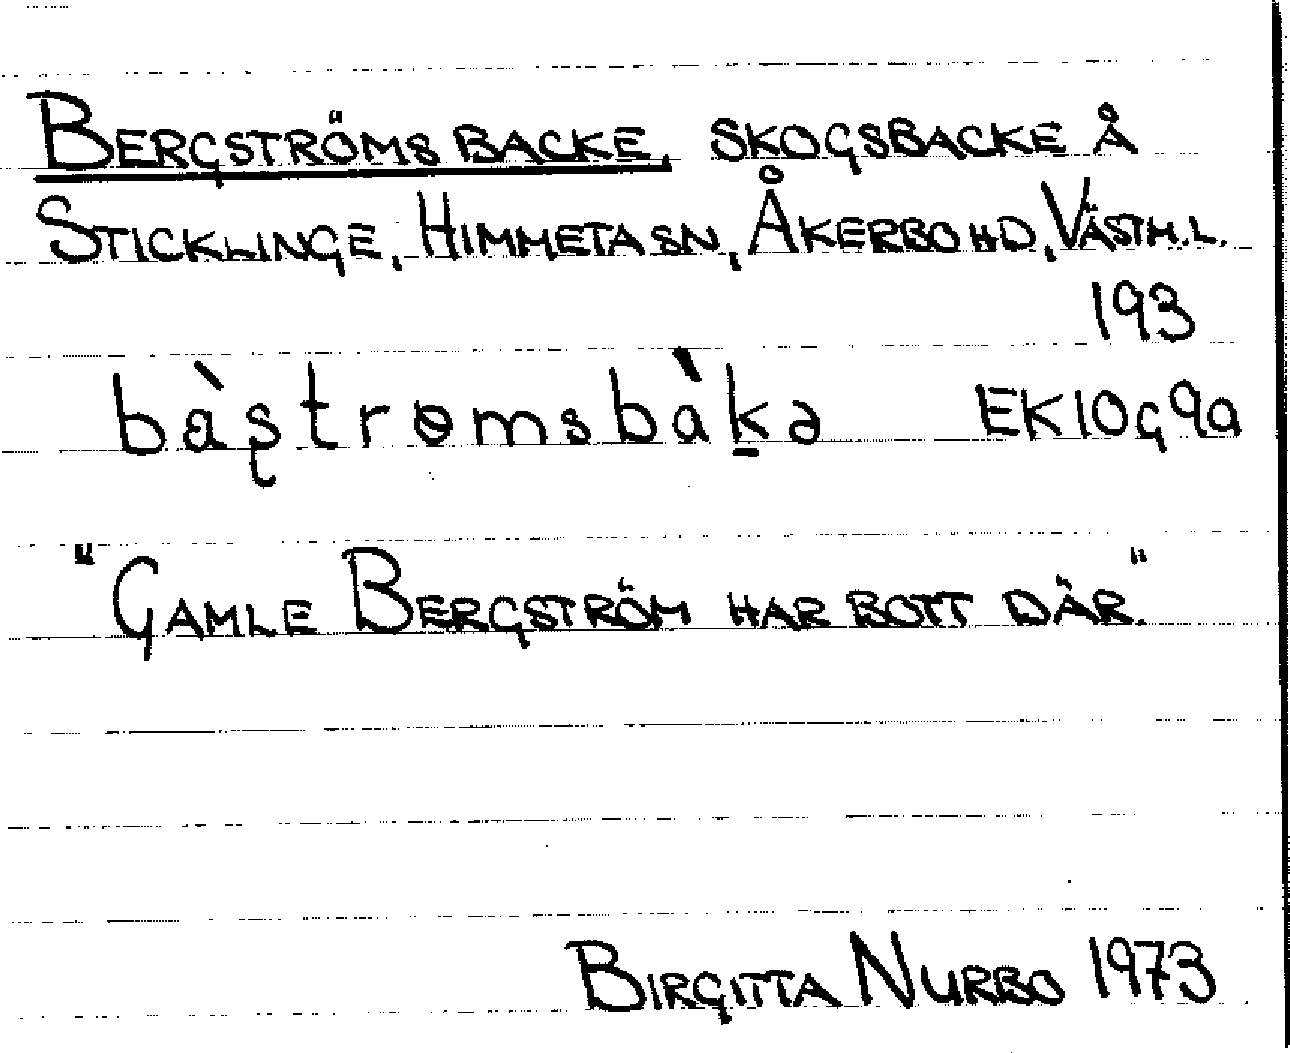 BERGSTRÖMSBACKE, SKOGSBACKE Å
STICKLINGE, HIMMETA SN, ÅKERBO HD, VÄSTM.L.
193
bàʂtrɵmsbàk̠ə EK10G9a
"GAMLE BERGSTRÖM HAR BOTT DÄR."
BIRGITTA NURBO 1973